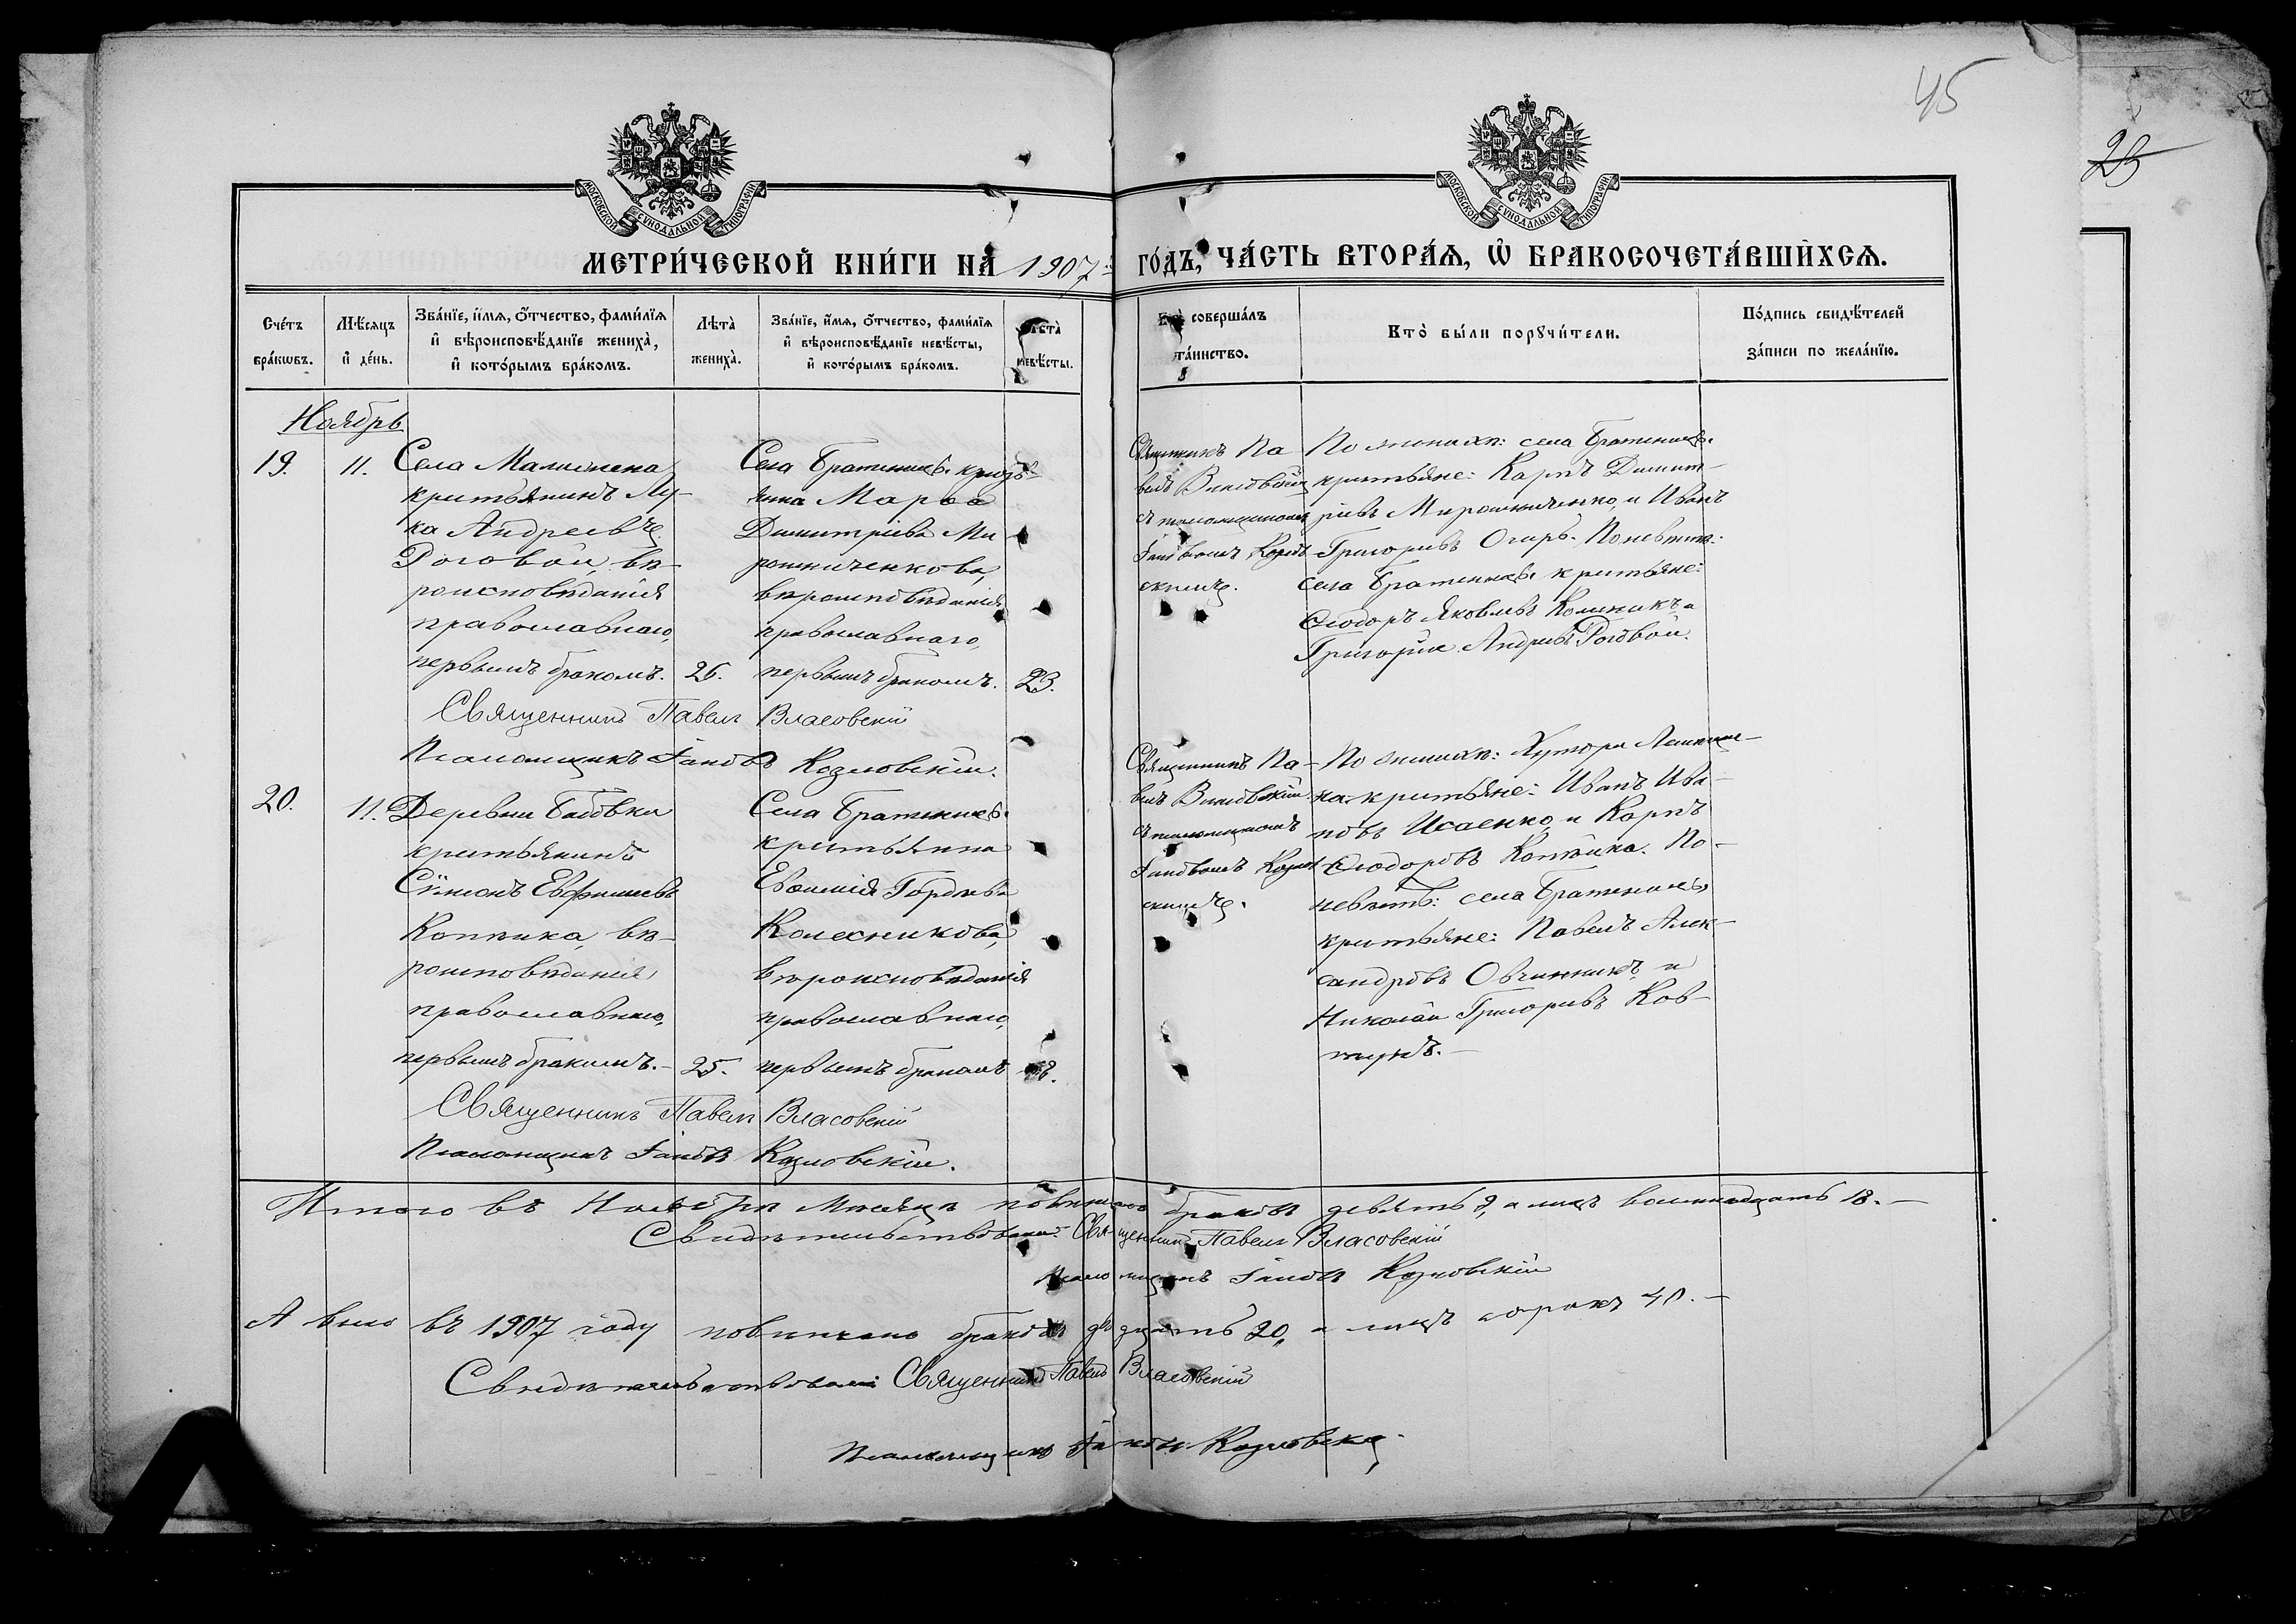 45
25
МОСКОВСКОЙ СѴНОДАЛЬНОЙ ТИПОГРАФІИ
МОСКОВСКОЙ СѴНОДАЛЬНОЙ ТИПОГРАФІИ
МЕТРИ́ЧЕСКОЙ КНИ́ГИ НА 1907 ГО́ДЪ, ЧА́СТЬ ВТОРА́Ѧ, Ѽ БРАКОСОЧЕТА́ВШИХСѦ.
Сче́тъ бра́кѡвъ.
Мѣ́сѧцъ и҆ де́нь.
Зва́нїе, и҆́мѧ, ѻ҆́тчество, фами́лїѧ и҆ вѣроисповѣ́данїе жениха̀, и҆ кото́рымъ бра́комъ.
Лѣта̀ жениха̀.
Зва́нїе, и҆́мѧ, ѻ҆́тчество, фами́лїѧ и҆ вѣроисповѣ́данїе невѣ́сты, и҆ кото́рымъ бра́комъ.
Лѣта̀ невѣ́сты.
совершáлъ та́инство.
Кто̀ бы́ли порꙋчи́тели.
По́дпись свидѣ́телей за́писи по жела́нїю.
Ноябрь
19.
11.
Села
крестьянинъ Лу-
ка Андреевъ
Роговой, вѣ-
роисповѣданія
православнаго,
первымъ бракомъ.
26.
Села
Марѳа
Димитріева Ми
рошниченкова,
вѣроисповѣданія
православнаго,
первымъ бракомъ.
23.
Священникъ Па
велъ Власовскій
съ псаломщикомъ
Іаковомъ Козлов
скимъ.
По женихѣ: села
крестьяне: Карпъ Димит-
ріевъ Мирошниченко, и Иванъ
Григорьевъ Огирь. По невѣстѣ:
села крестьяне:
Ѳеодоръ Яковлевъ и
Григорій Андреевъ Роговой.
Священникъ Павелъ Власовскій
Псаломщикъ Іаковъ Козловскій.
20.
11.
Деревни
крестьянинъ
Сѵмеонъ
Копѣйка, вѣ-
роисповѣданія
православнаго,
первымъ бракомъ.-
25.
Села
крестьянка
Евѳимія Гордіева
Колесникова,
вѣроисповѣданія
православнаго,
первымъ бракомъ
Священникъ Па-
велъ Власовскій
съ псаломщикомъ
Іаковомъ Козлов
скимъ.
По женихѣ: Хутора
крестьяне: Иванъ Ива-
новъ Исаенко, и Карпъ
Ѳеодоровъ Копѣйка. По-
невѣстѣ: села
крестьяне: Павелъ Алек-
сандровъ Овчинникъ и
Николай Григорьевъ Ков-
тунъ.-
Священникъ Павелъ Власовскій
Псаломщикъ Іаковъ Козловскій.
Итого въ Ноябрѣ Мѣсяцѣ повѣнчано браковъ девять 9, а лицъ восемнадцать 18.-
Свидѣтельствовали: Священникъ Павелъ Власовскій
Псаломщикъ Іаковъ Козловскій
А всего въ 1907 году повѣнчано браковъ двадцать 20, а лицъ сорокъ 40.-
Свидѣтельствовали: Священникъ Павелъ Власовскій
Псаломщикъ Іаковъ Козловскій